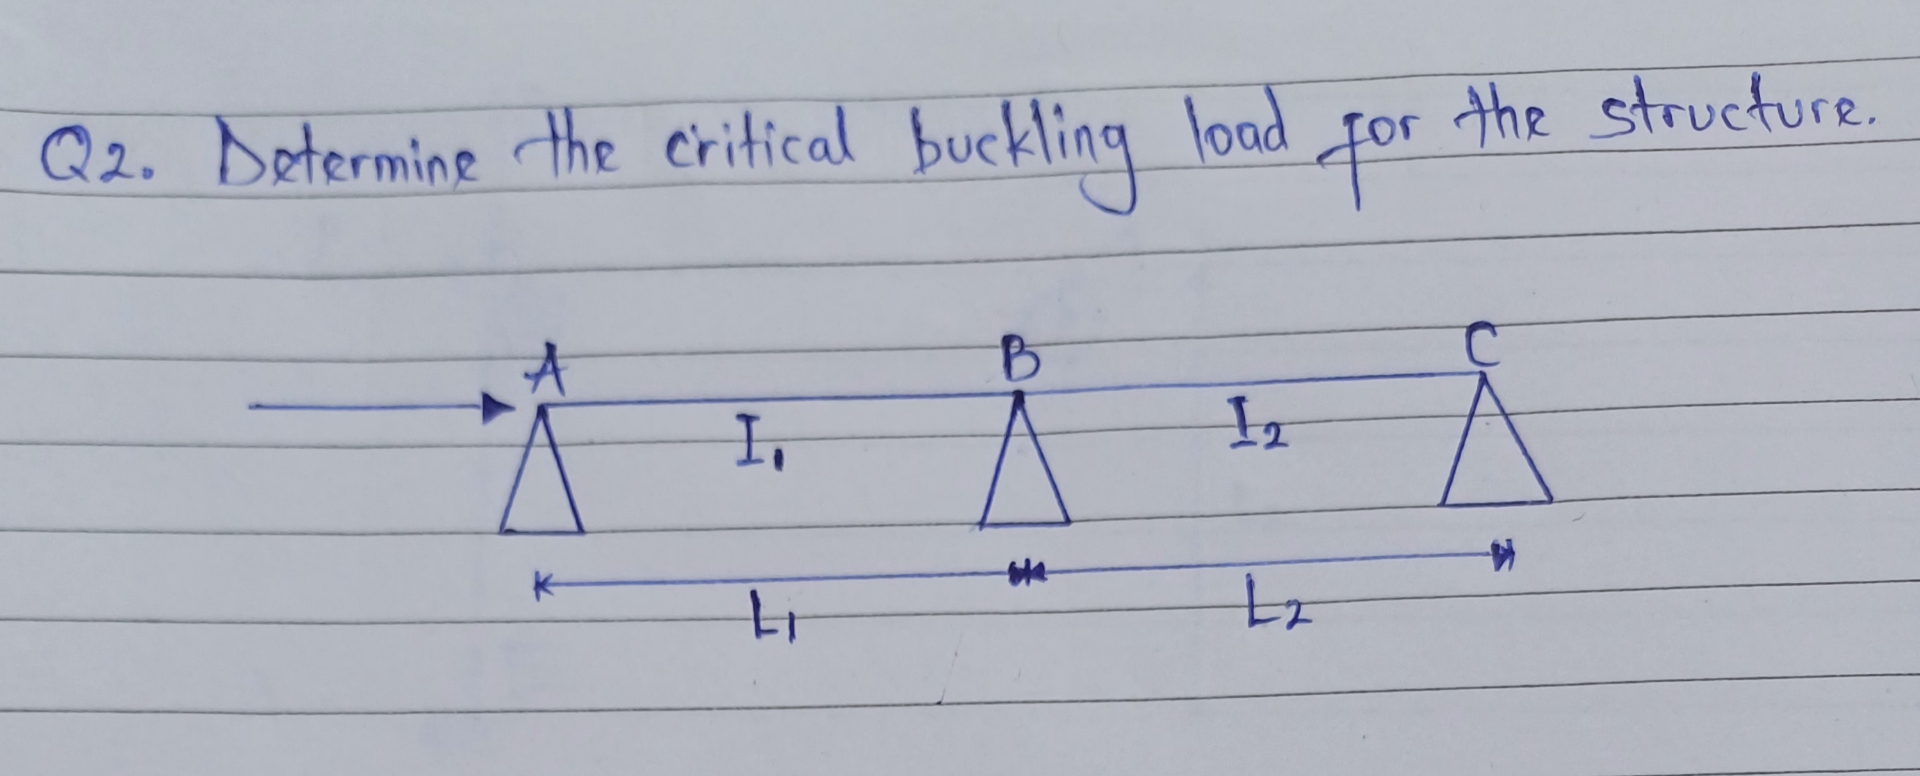 Q2. Determine the critical buckling load for the structure.
A B C
I₁ I₂
L₁ L₂